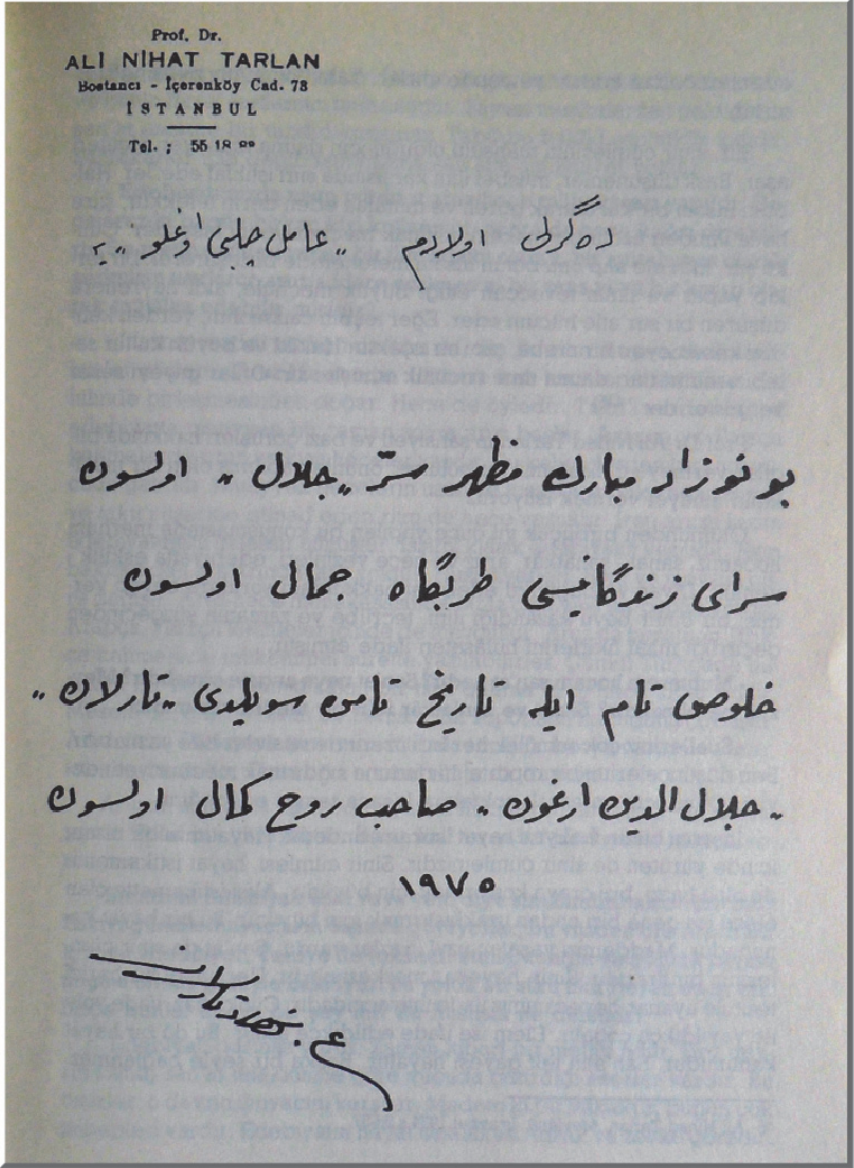 Prof. Dr.
ALİ NİHAT TARLAN
Bostancı - İçerenköy Cad. 73
İSTANBUL
Tel. : 55 18
اولادم „عامل چلبی اوغلو„ يه
بو نوزاد مبارك مظهر سرّ „جلال„ اولسون
سراى زندگانيسى طربگاه جمال اولسون
خلوص تام ايله تاريخ تامن سويلدى „تارلان„
„جلال الدين ارغون„ صاحب روح كمال اولسون
١٩٧٥
ع. نهاد تارلان